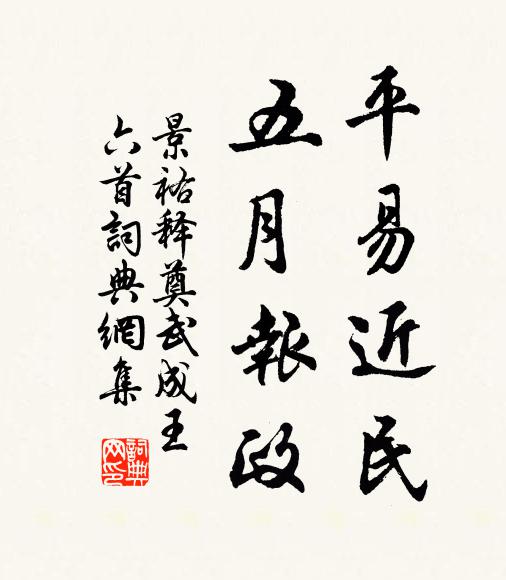 平易近民
五月報政
景祐释奠武成王
六首詞典網集
詞典網印